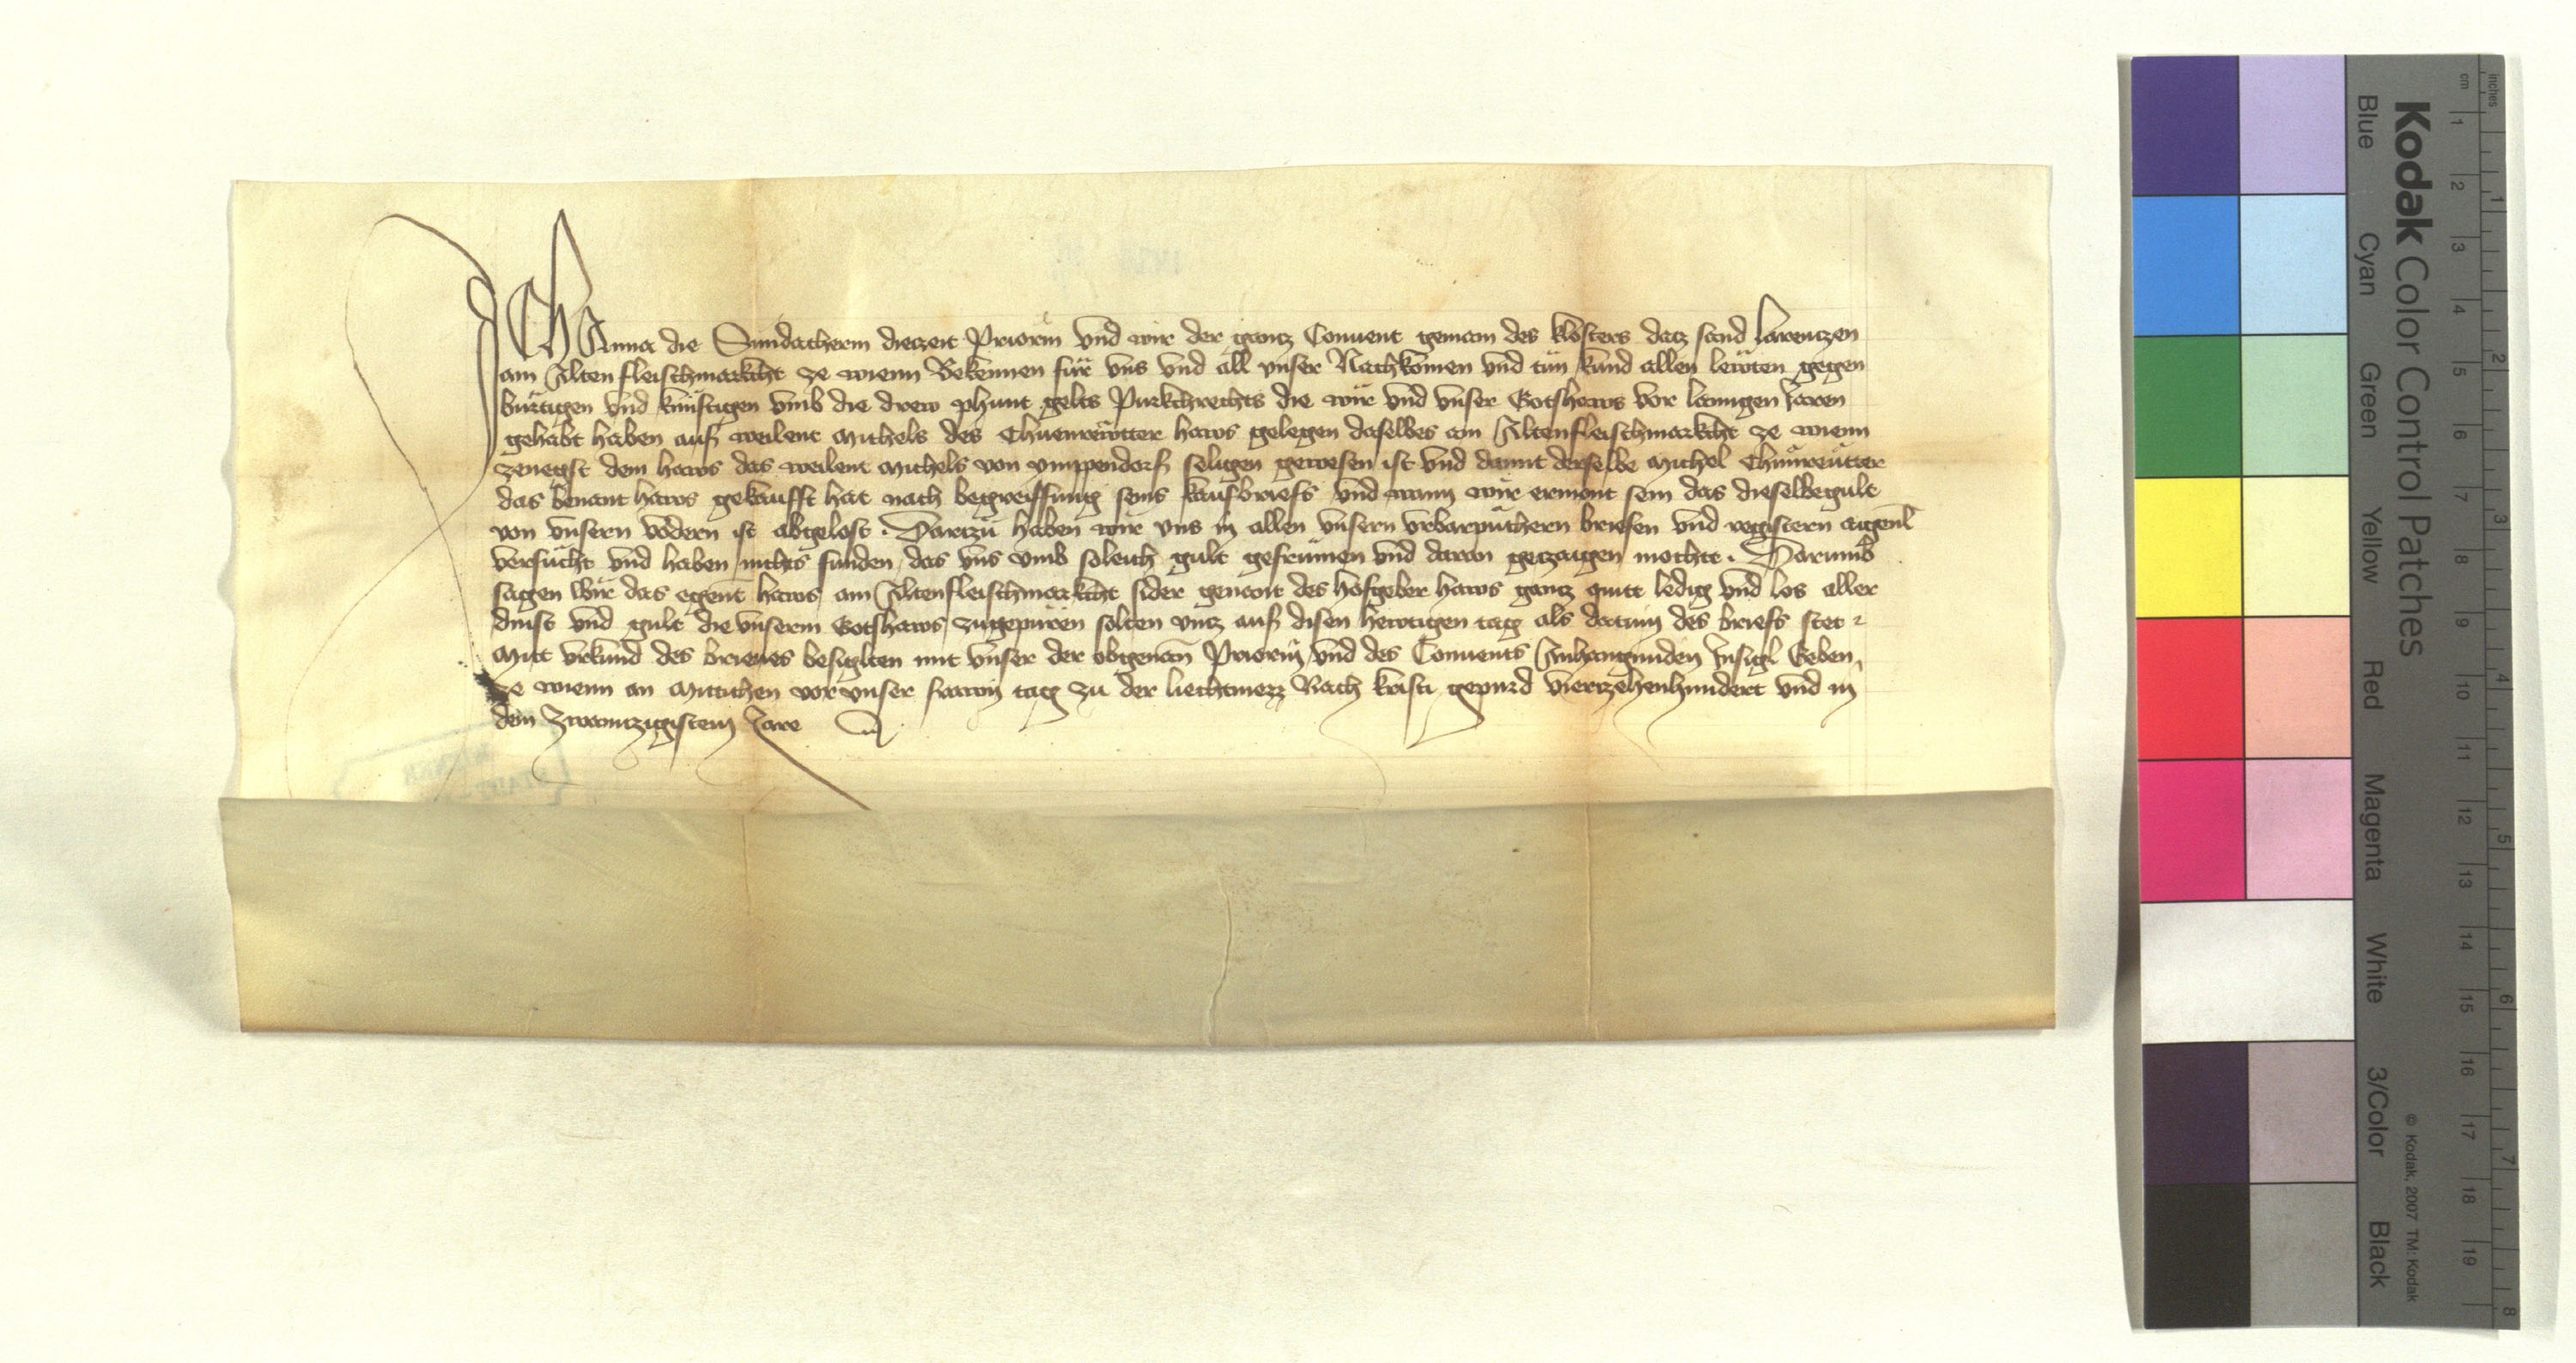 Ich Anna die Sundacherin diezeit Priorin vnd wir der gantz Conuent gemain des klosters datz sand Larentzen
am Alten fleischmarkcht ze wienn Bekennen für vns vnd all vnser Nachkomen vnd tün kund allen lewten gegen
burtigen vnd künftigen vmb die drew phunt gelts Purkchrechts die wir vnd vnser Gotshaws vor lanngen Jaren
gehabt haben auf weilent Michels des Chuenrewtter haws gelegen daselbes am Altenfleischmarkcht ze wienn
zenegst dem haws das weilent Michels von Ympendorf seligen gewesen ist vnd damit derselbe Michel Chünreutter
das benant haws gekaufft hat nach begreiffung seins kaufbriefs vnd wann wir ermont sein das dieselbegült
von vnsern vodern ist abgelost. Dartzü haben wir vns in allen vnsern vrbarpüchern briefen vnd registern aigenl
versücht vnd haben nichts funden das vns vmb soleich gult gefrümen vnd daran getzaigen mochte. Darumb
sagen wir das egent haws am Altenfleischmarkcht sider genant des hofgeber haws gantz quitt ledig vnd los aller
dinst vnd gult die vnserm Gotshaws zugepüren solten vntz auf disen hewtigen tag als datum des briefs stet
Mit vrkund des brieues besiglten mit vnser der obgenan Priorin vnd des Conuents Anhangunden Insigl Geben
ze wienn an Mittichen vor vnser frawn tag zu der liechtmezz Nach kristi gepurd viertzehenhundert vnd in
dem Zwaintzigistem Jare
Kodak Color Control Patches
Blue Cyan Green Yellow Red Magenta White 3/Color Black
© Kodak, 2007 TM: Kodak
cm 1 2 3 4 5 6 7 8 9 10 11 12 13 14 15 16 17 18 19
inches 1 2 3 4 5 6 7 8